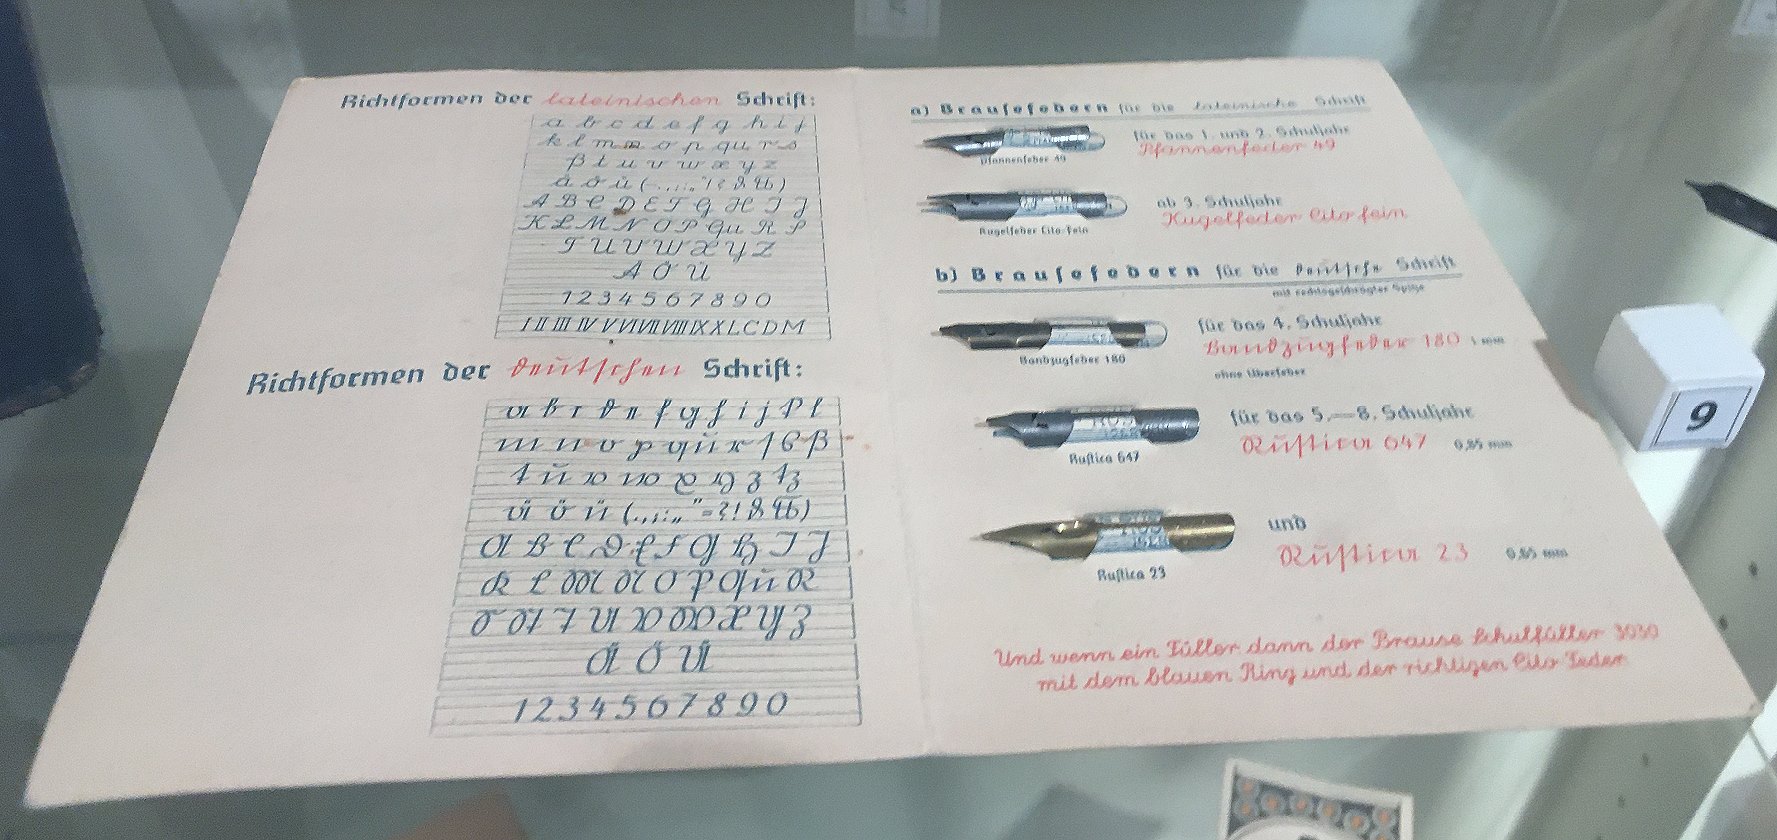 Richtformen der lateinischen Schrift:
a b c d e f g h i j
k l m n o p qu r s
ß t u v w x y z
ä ö ü (-.,:;„"!?& §)
A B C D E F G H I J
K L M N O P Qu R S
T U V W X Y Z
Ä Ö Ü
1 2 3 4 5 6 7 8 9 0
I II III IV V VI VII VIII IX X L C D M
Richtformen der deutschen Schrift:
a b c d e f g h i j k l
m n o p qu r s ß
t u v w x y z tz
ä ö ü (.,;:„"=?!& §)
A B C D E F G H I J
K L M N O P Qu R
S St T U V W X Y Z
Ä Ö Ü
1 2 3 4 5 6 7 8 9 0
a) Brausefedern für die lateinische Schrift
für das 1. und 2. Schuljahr
Pfannenfeder 49
Pfannenfeder 49
ab 3. Schuljahr
Kugelfeder Cito fein
Kugelfeder Cito-fein
b) Brausefedern für die deutsche Schrift
mit rechtsgeschrägter Spitze
für das 4. Schuljahr
Bandzugfeder 180 1 mm
Bandzugfeder 180
ohne Überfeder
für das 5.—8. Schuljahr
Rustica 647 0,85 mm
Rustica 647
und
Rustica 23 0,65 mm
Rustica 23
Und wenn ein Füller dann der Brause Schulfüller 3030
mit dem blauen Ring und der richtigen Cito Feder
9